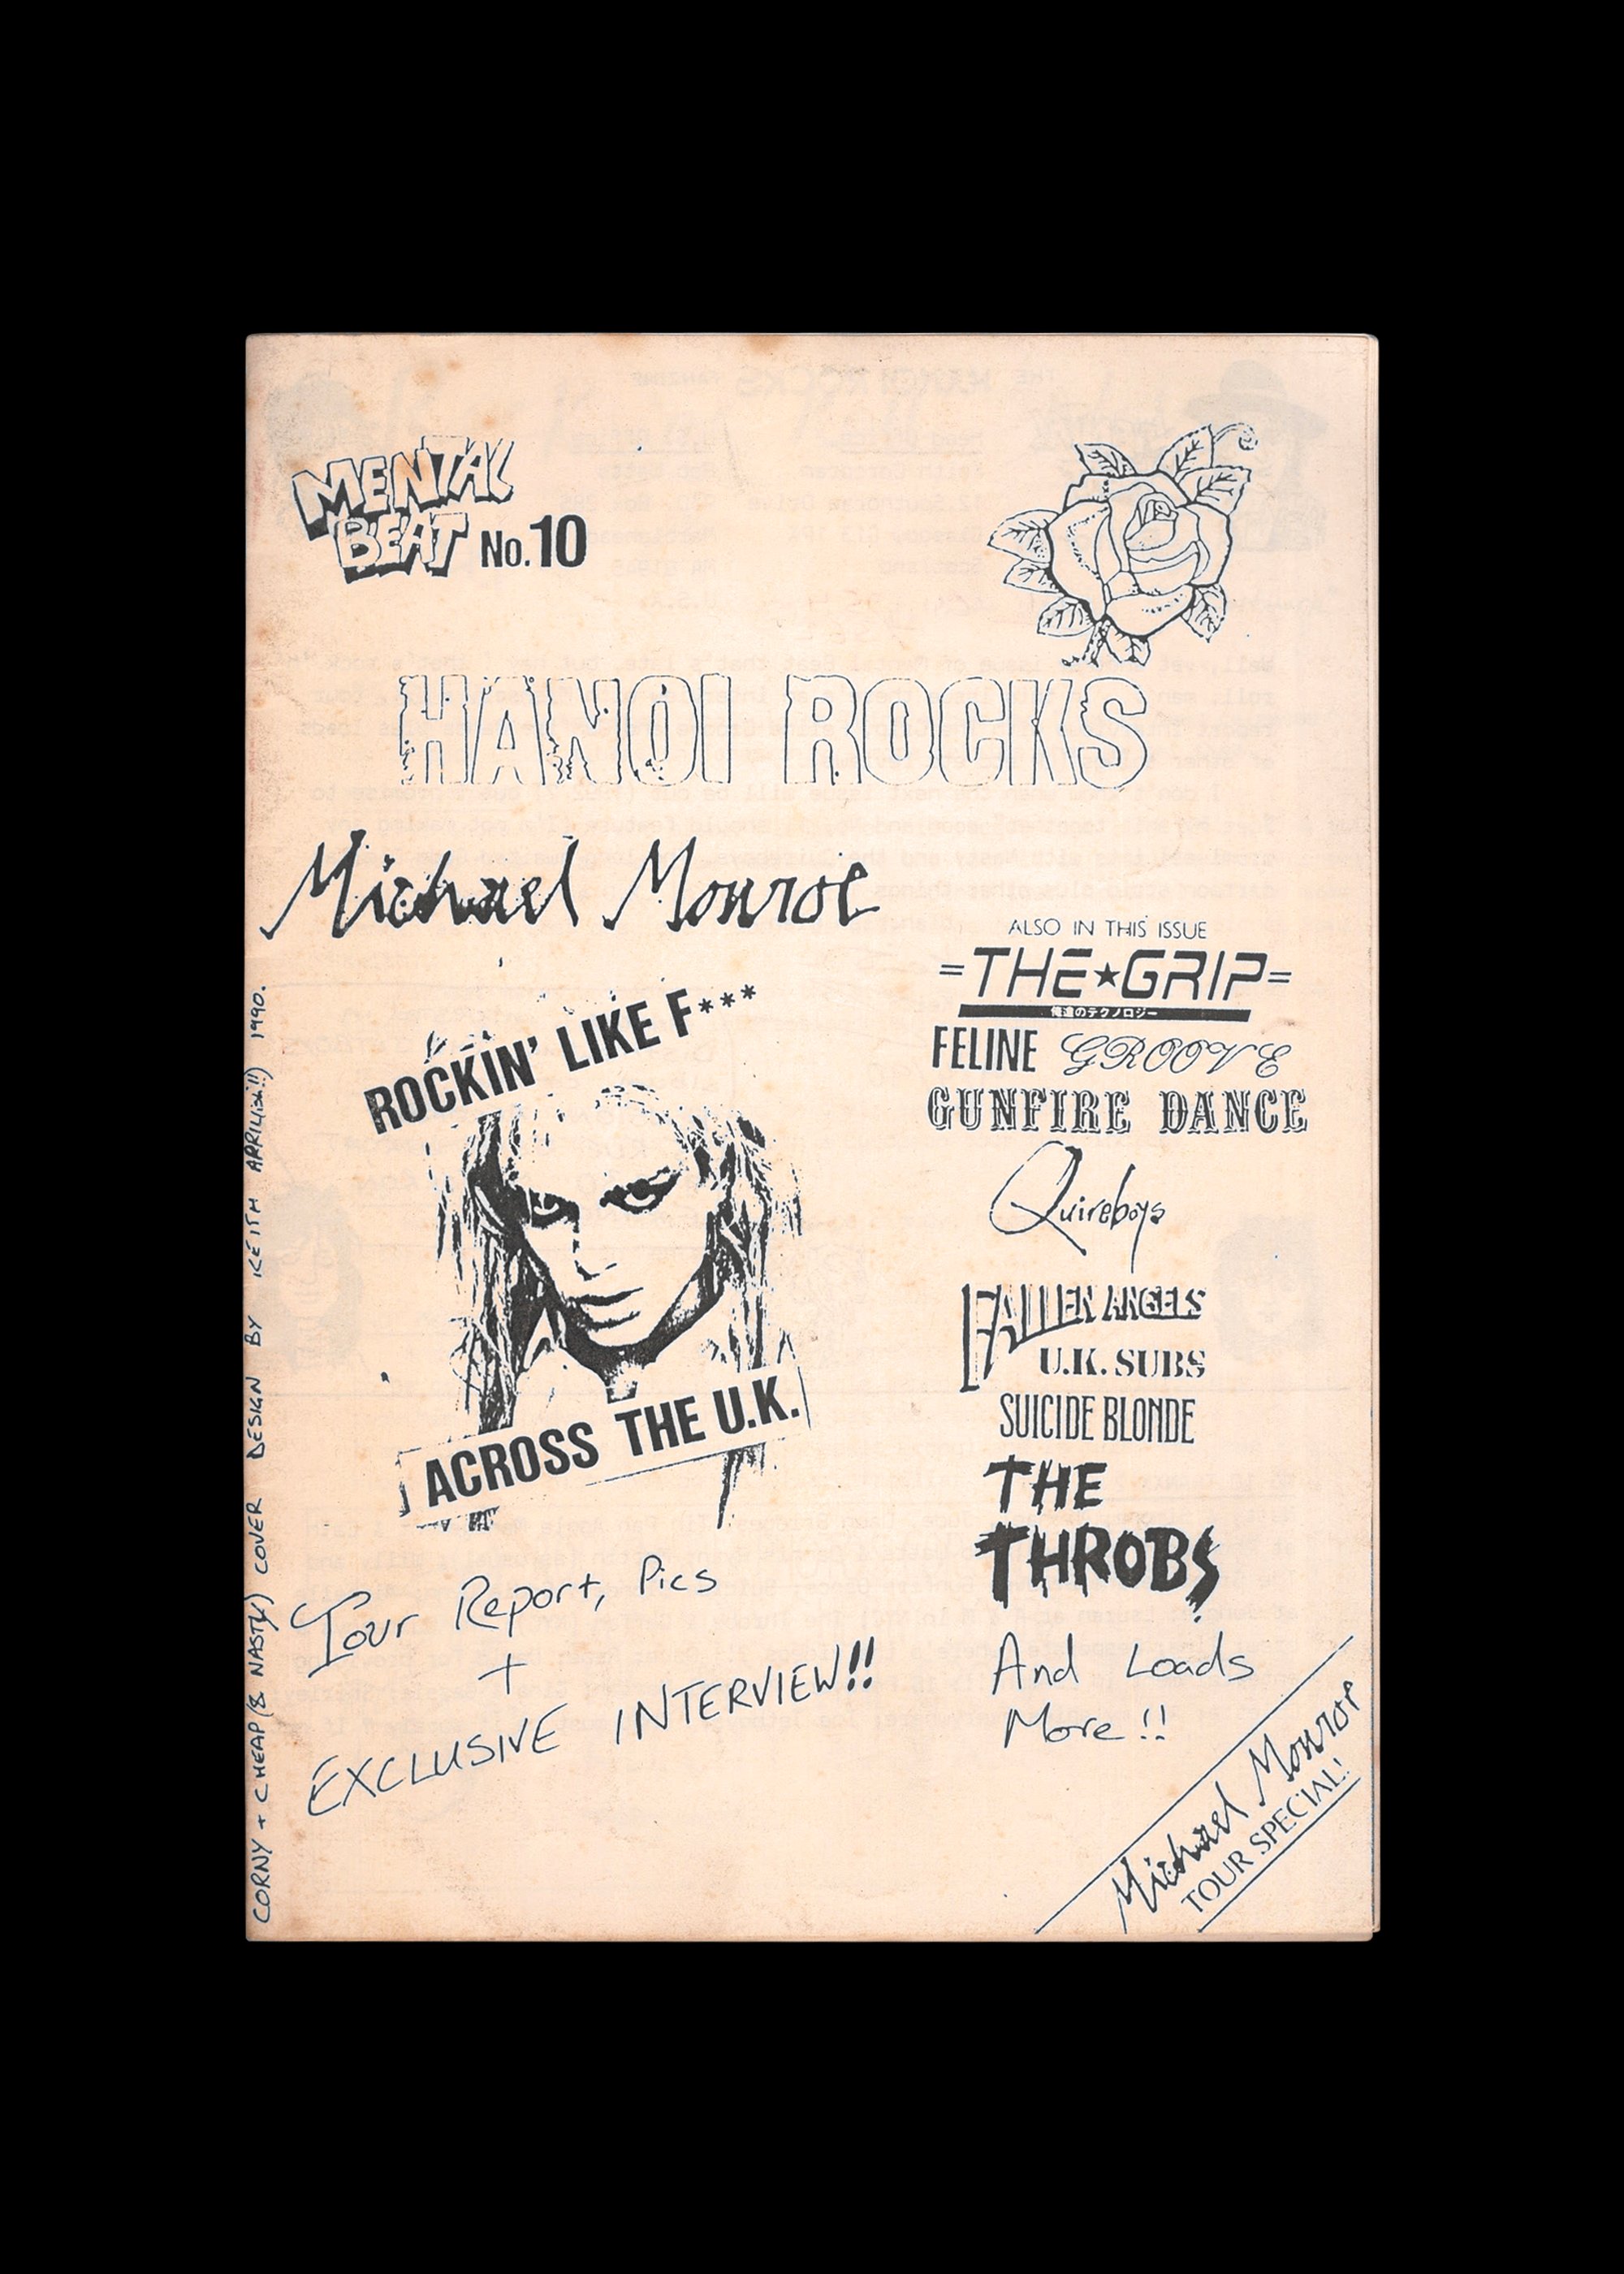 MENTAL
BEAT No.10
HANOI ROCKS
Michael Monroe
ROCKIN' LIKE F***
ACROSS THE U.K.
Tour Report, Pics
+
EXCLUSIVE INTERVIEW!!
ALSO IN THIS ISSUE
=THE★GRIP=
俺達のテクノロジー
FELINE GROOVE
GUNFIRE DANCE
Quireboys
FALLEN ANGELS
U.K. SUBS
SUICIDE BLONDE
THE
THROBS
And Loads
More!!
Michael Monroe
TOUR SPECIAL!
CORNY + CHEAP (& NASTY) COVER DESIGN BY KEITH APRIL(ish!!) 1990.